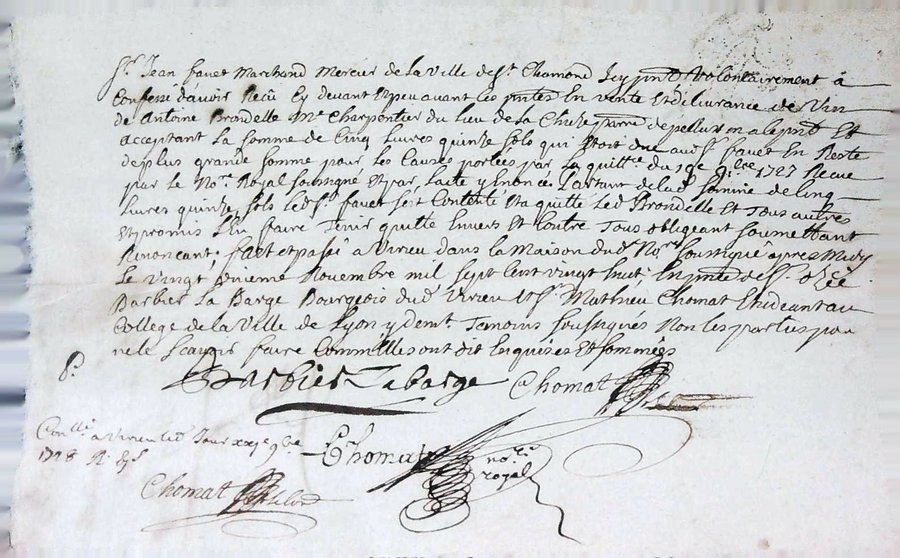 Sr. Jean favet Marchand Mercier de la Ville de St. Chamond Ley pntd. Volontairement à
Confessé d'avoir Reçu Cy devant Et peu avant les pntes En vente Et délivrance de Vin
de Antoine Brondelle Me Charpentier du Lieu de la Chize de pellussin a le pnt Et
acceptant La Somme de Cinq Livres quinze Sols qui Etoit due aud. Sr. favet En Reste
de plus grande Somme pour les Causes portées par la quittce du 9bre 1727 Recue
par le Nore Royal Soussigné Et par Laite y Enoncé partant de lad. Somme de Cinq
Livres quinze Sols led. Sr. favet s'est Contenté Et a quitté led Brondelle Et Tous autres
Et promis L'En faire Tenir quitte Envers Et Contre Tous obligeant Soumettant
Renonçant. fait Et passé a Virieu dans la Maison dud. Nore Soussigné après Midy
Le Vingt Novembre mil Sept Cent Vingt huit En pnce de Sr.
Barbier La Barge Bourgeois dud. Virieu Et Sr. Mathieu Chomat Etudiant au
College de la Ville de Lyon y demt. Temoins Soussignés Non les parties pour
ne le Scavoir faire Comm'Elles ont dit Enquises Et Sommées
Barbier Labarge Chomat
Conllé a Virieu led. Jour xxj 9bre
1728
Chomat nore royal
Chomat